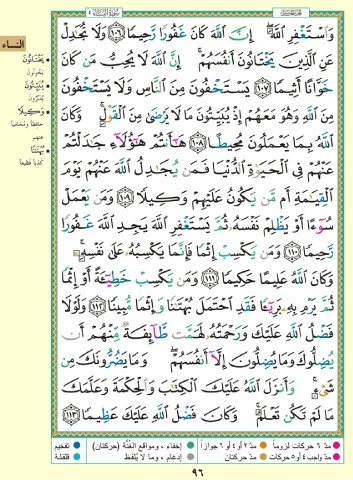 سورة النساء ٤
الجزء الخامس
وَٱسْتَغْفِرِ ٱللَّهَ ۖ إِنَّ ٱللَّهَ كَانَ غَفُورًا رَّحِيمًا ﴿١٠٦﴾ وَلَا تُجَٰدِلْ
عَنِ ٱلَّذِينَ يَخْتَانُونَ أَنفُسَهُمْ ۚ إِنَّ ٱللَّهَ لَا يُحِبُّ مَن كَانَ
خَوَّانًا أَثِيمًا ﴿١٠٧﴾ يَسْتَخْفُونَ مِنَ ٱلنَّاسِ وَلَا يَسْتَخْفُونَ
مِنَ ٱللَّهِ وَهُوَ مَعَهُمْ إِذْ يُبَيِّتُونَ مَا لَا يَرْضَىٰ مِنَ ٱلْقَوْلِ ۚ وَكَانَ
ٱللَّهُ بِمَا يَعْمَلُونَ مُحِيطًا ﴿١٠٨﴾ هَٰٓأَنتُمْ هَٰٓؤُلَآءِ جَٰدَلْتُمْ
عَنْهُمْ فِى ٱلْحَيَوٰةِ ٱلدُّنْيَا فَمَن يُجَٰدِلُ ٱللَّهَ عَنْهُمْ يَوْمَ
ٱلْقِيَٰمَةِ أَم مَّن يَكُونُ عَلَيْهِمْ وَكِيلًا ﴿١٠٩﴾ وَمَن يَعْمَلْ
سُوٓءًا أَوْ يَظْلِمْ نَفْسَهُۥ ثُمَّ يَسْتَغْفِرِ ٱللَّهَ يَجِدِ ٱللَّهَ غَفُورًا
رَّحِيمًا ﴿١١٠﴾ وَمَن يَكْسِبْ إِثْمًا فَإِنَّمَا يَكْسِبُهُۥ عَلَىٰ نَفْسِهِۦ ۚ
وَكَانَ ٱللَّهُ عَلِيمًا حَكِيمًا ﴿١١١﴾ وَمَن يَكْسِبْ خَطِيٓـَٔةً أَوْ إِثْمًا
ثُمَّ يَرْمِ بِهِۦ بَرِيٓـًٔا فَقَدِ ٱحْتَمَلَ بُهْتَٰنًا وَإِثْمًا مُّبِينًا ﴿١١٢﴾ وَلَوْلَا
فَضْلُ ٱللَّهِ عَلَيْكَ وَرَحْمَتُهُۥ لَهَمَّت طَّآئِفَةٌ مِّنْهُمْ أَن
يُضِلُّوكَ وَمَا يُضِلُّونَ إِلَّآ أَنفُسَهُمْ ۖ وَمَا يَضُرُّونَكَ مِن
شَىْءٍ ۚ وَأَنزَلَ ٱللَّهُ عَلَيْكَ ٱلْكِتَٰبَ وَٱلْحِكْمَةَ وَعَلَّمَكَ
مَا لَمْ تَكُن تَعْلَمُ ۚ وَكَانَ فَضْلُ ٱللَّهِ عَلَيْكَ عَظِيمًا ﴿١١٣﴾
النساء
يَخْتَانُونَ
يخونون
يُبَيِّتُونَ
يدبّرون
وَكِيلًا
حافظا ومحاميا
عنهم
بُهْتَٰنًا
كذبا فظيعا
مدّ ٦ حركات لزوماً
مدّ ٢ أو ٤ أو ٦ جوازاً
إخفاء، ومواقع الغُنَّة (حركتان)
تفخيم
مدّ واجب ٤ أو ٥ حركات
مدّ حركتان
إدغام، وما لا يُلفَظ
قلقلة
٩٦